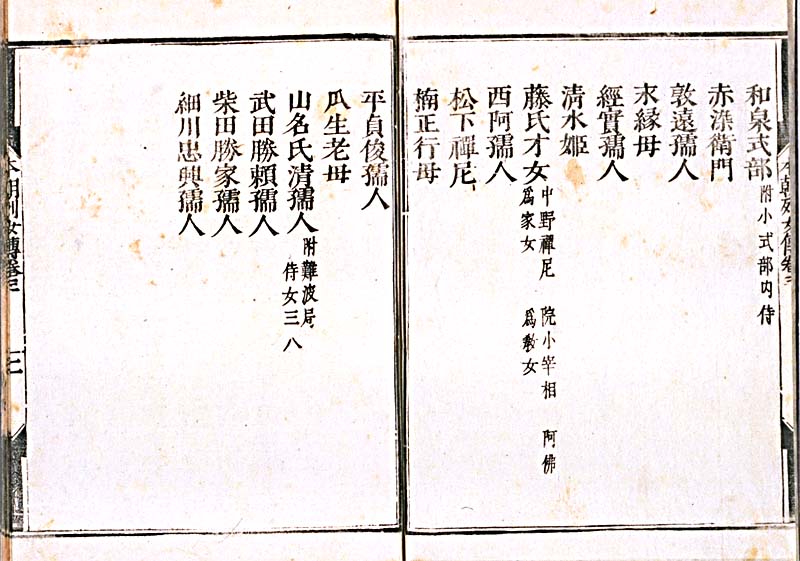 和泉式部 附小式部内侍
赤染衛門
敦遠孺人
末縁母
經實孺人
清水姬
藤氏才女 中野禪尼 院小宰相 阿佛
爲家女 爲敎女
西阿孺人
松下禪尼
楠正行母
平貞俊孺人
瓜生老母
山名氏清孺人 附難波局
侍女三八
武田勝賴孺人
柴田勝家孺人
細川忠興孺人
本朝列女傳卷三
三